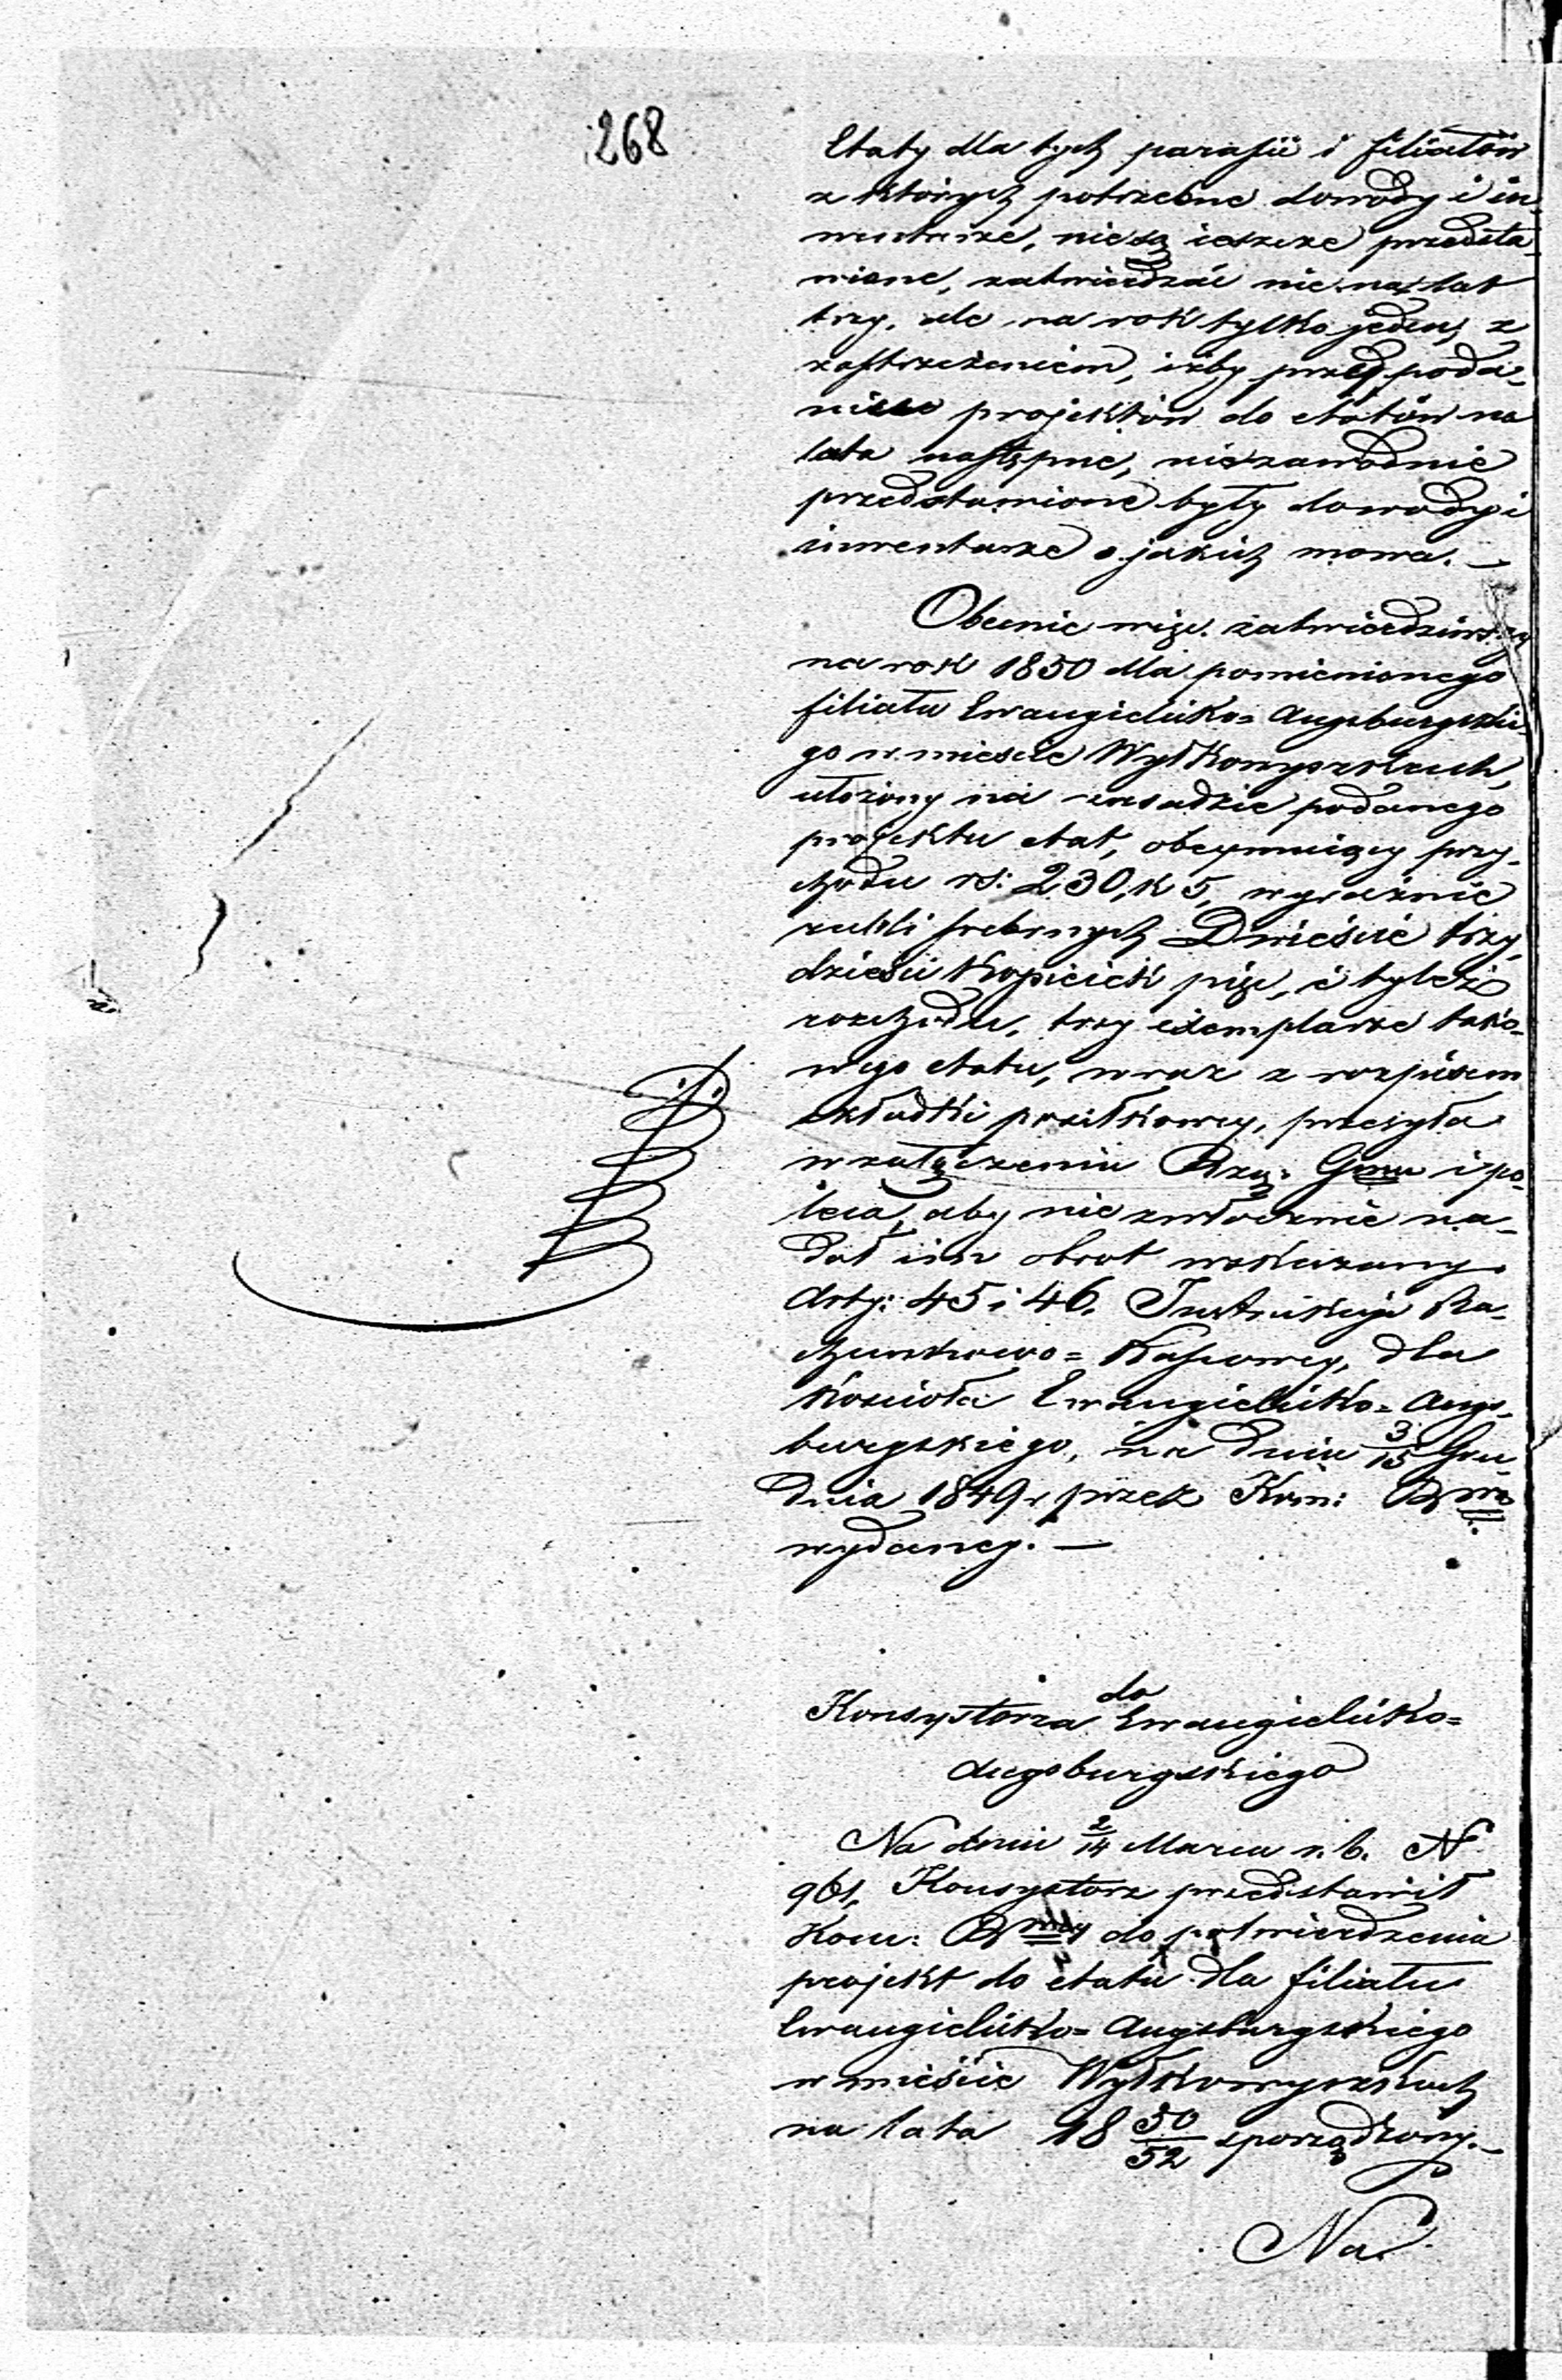 268
Etaty dla tych parafii i filiałów
z których potrzebne dowody i in-
wentarze, nie są ieszcze przedsta-
wione, zatwierdzać nie na lat
trzy, ale na rok tylko jeden, z
zastrzeżeniem, iżby przed poda-
niem projektów do etatów na
lata następne, niezawodnie
przedstawione były dowody i
inwentarze o jakich mowa. —
Obecnie więc zatwierdziwszy
na rok 1850 dla pomienionego
filiału Ewangielicko= Augsburgskie-
go w mieście Wyłkowyszkach,
ułożony na zasadzie podanego
projektu etat, obeymuiący przy-
chodu rs: 230, k 5, wyraźnie
rubli srebrnych Dwieście trzy-
dzieści kopieiek pięć, i tyleż
rozchodu, trzy exemplarze tako-
wego etatu, wraz z rozpisem
składki posiłkowey, przesyła
w załączeniu Rzą: Gmu i po-
leca, aby niezwłocznie na-
dał im obrot wskazany
Arty: 45 i 46. Instrukcyi Ra-
chunkowo= Kassowey, dla
Kościoła Ewangielicko= Augs-
burgskiego, na dniu 3/15 Gru-
dnia 1849 r przez Kom: R
wydaney. —
do
Konsystorza Ewangielicko=
Augsburgskiego
Na dniu 2/14 Marca r. b. N
961, Konsystorz przedstawił
Kom: R do potwierdzenia
projekt do etatu dla filiału
Ewangielicko= Augsburgskiego
w mieście Wyłkowyszkach
na lata 18 50/52 sporządzony. —
Na